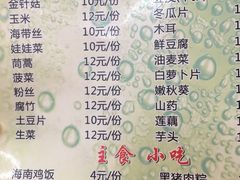 金针菇 10元/份
玉米 12元/份
海带丝 10元/份
娃娃菜 10元/份
茼蒿 12元/份
菠菜 12元/份
粉丝 12元/份
腐竹 12元/份
土豆片 10元/份
生菜 12元/份
冬瓜片
木耳
鲜豆腐
油麦菜
白萝卜片
嫩秋葵
山药
莲藕
芋头
主食 小吃
海南鸡饭 4元/份
黑猪肉粽